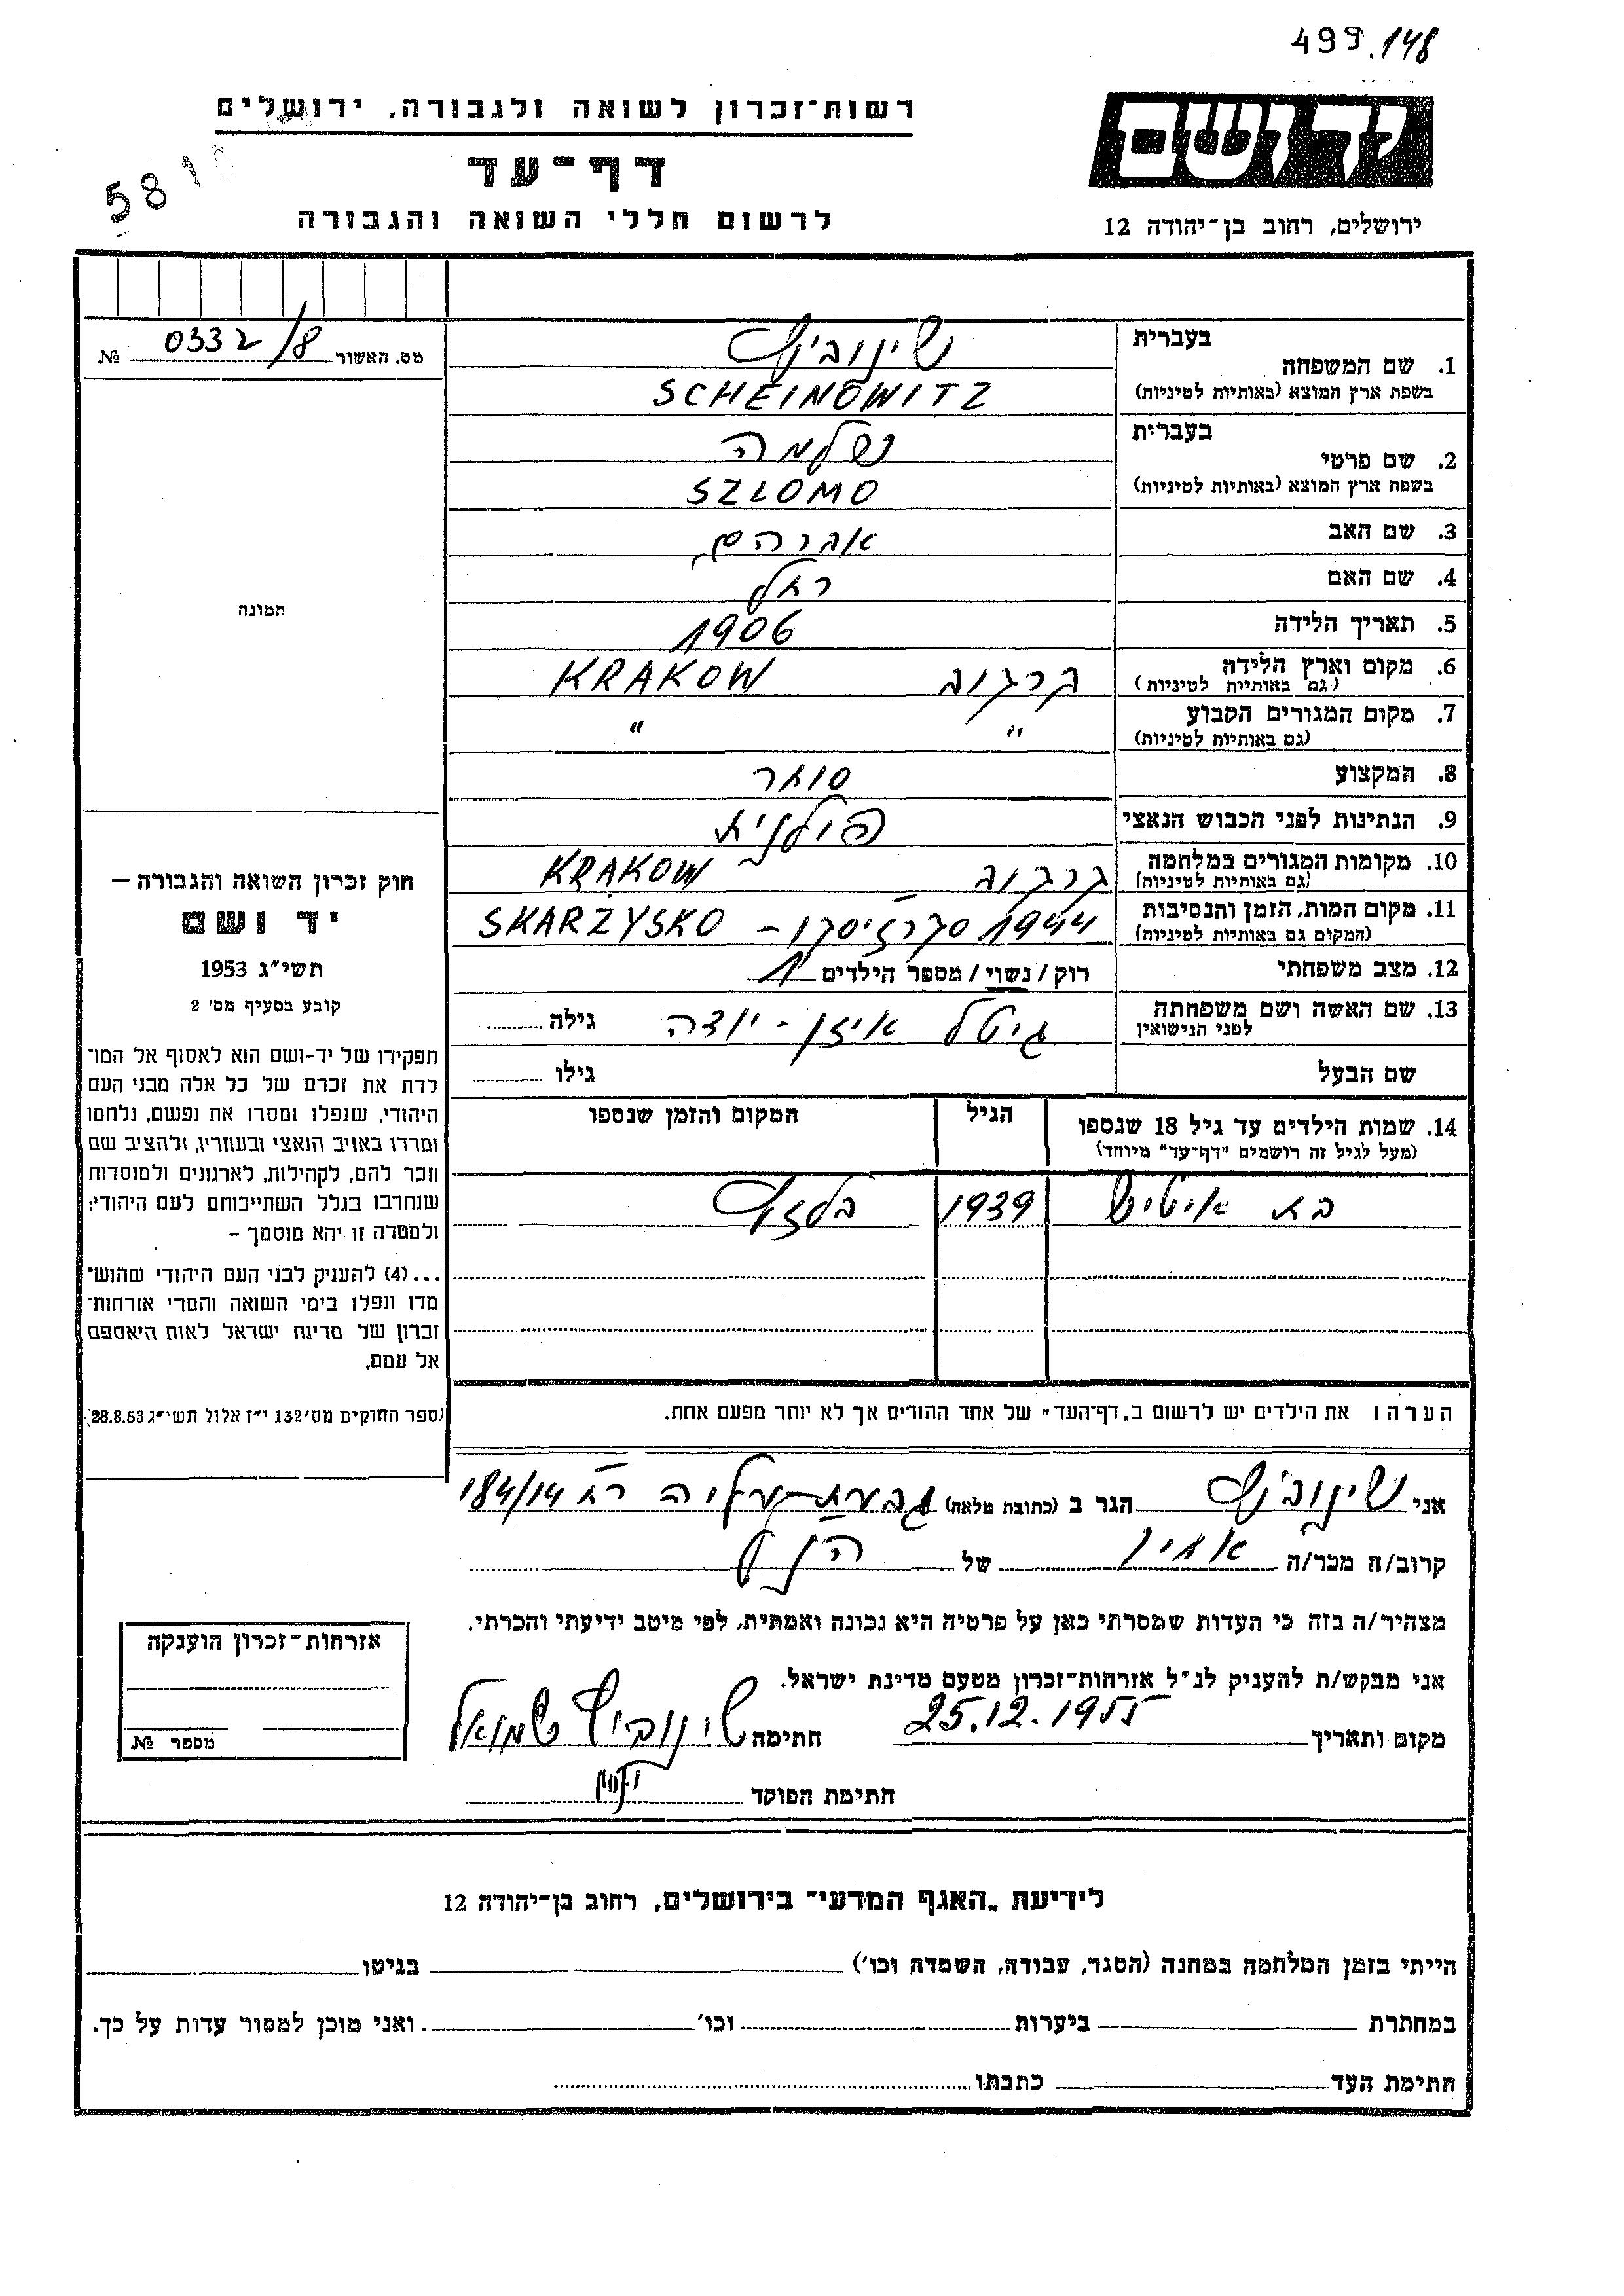 499.148
רשות־זכרון לשואה ולגבורה, ירושלים
יד ושם
דף־עד
לרשום חללי השואה והגבורה
ירושלים, רחוב בן־יהודה 12
581
מס. האשור 0332/8 №
בעברית
1. שם המשפחה שינוביץ
בשפת ארץ המוצא (באותיות לטיניות) SCHEINOWITZ
בעברית
2. שם פרטי שלמה
בשפת ארץ המוצא (באותיות לטיניות) SZLOMO
3. שם האב אברהם
4. שם האם רחל
5. תאריך הלידה 1906
6. מקום וארץ הלידה קרקוב KRAKOW
(גם באותיות לטיניות)
7. מקום המגורים הקבוע " "
(גם באותיות לטיניות)
8. המקצוע סוחר
9. הנתינות לפני הכבוש הנאצי פולנית
10. מקומות המגורים במלחמה קרקוב KRAKOW
(גם באותיות לטיניות)
11. מקום המות, הזמן והנסיבות 1944 סקרז'יסקו – SKARŻYSKO
(המקום גם באותיות לטיניות)
12. מצב משפחתי רוק / נשוי / מספר הילדים 1
13. שם האשה ושם משפחתה גיטל איזן - יודה גילה
לפני הנישואין
שם הבעל גילו
14. שמות הילדים עד גיל 18 שנספו הגיל המקום והזמן שנספו
(מעל לגיל זה רושמים "דף־עד" מיוחד)
בת 1939 בלזץ
הערה! את הילדים יש לרשום ב„דף־העד" של אחד ההורים אך לא יותר מפעם אחת.
תמונה
חוק זכרון השואה והגבורה —
יד ושם
תשי"ג 1953
קובע בסעיף מס' 2
תפקידו של יד-ושם הוא לאסוף אל המו־
לדת את זכרם של כל אלה מבני העם
היהודי, שנפלו ומסרו את נפשם, נלחמו
ומרדו באויב הנאצי ובעוזריו, ולהציב שם
וזכר להם, לקהילות, לארגונים ולמוסדות
שנחרבו בגלל השתייכותם לעם היהודי;
ולמטרה זו יהא מוסמך —
...(4) להעניק לבני העם היהודי שהוש־
מדו ונפלו בימי השואה והמרי אזרחות־
זכרון של מדינת ישראל לאות היאספם
אל עמם.
(ספר החוקים מס' 132 י"ז אלול תשי"ג 28.8.53)
אני שינוביץ הגר ב (כתובת מלאה) גבעת-עליה רח 184/14
קרוב/ה מכר/ה אחיו של הנ"ל
מצהיר/ה בזה כי העדות שמסרתי כאן על פרטיה היא נכונה ואמתית, לפי מיטב ידיעתי והכרתי.
אני מבקש/ת להעניק לנ"ל אזרחות־זכרון מטעם מדינת ישראל.
מקום ותאריך 25.12.1955 חתימה שינוביץ שמואל
חתימת הפוקד
אזרחות־זכרון הוענקה
מספר №
לידיעת „האגף המדעי" בירושלים, רחוב בן־יהודה 12
הייתי בזמן המלחמה במחנה (הסגר, עבודה, השמדה וכו') בגיטו
במחתרת ביערות וכו' ואני מוכן למסור עדות על כך.
חתימת העד כתבתו